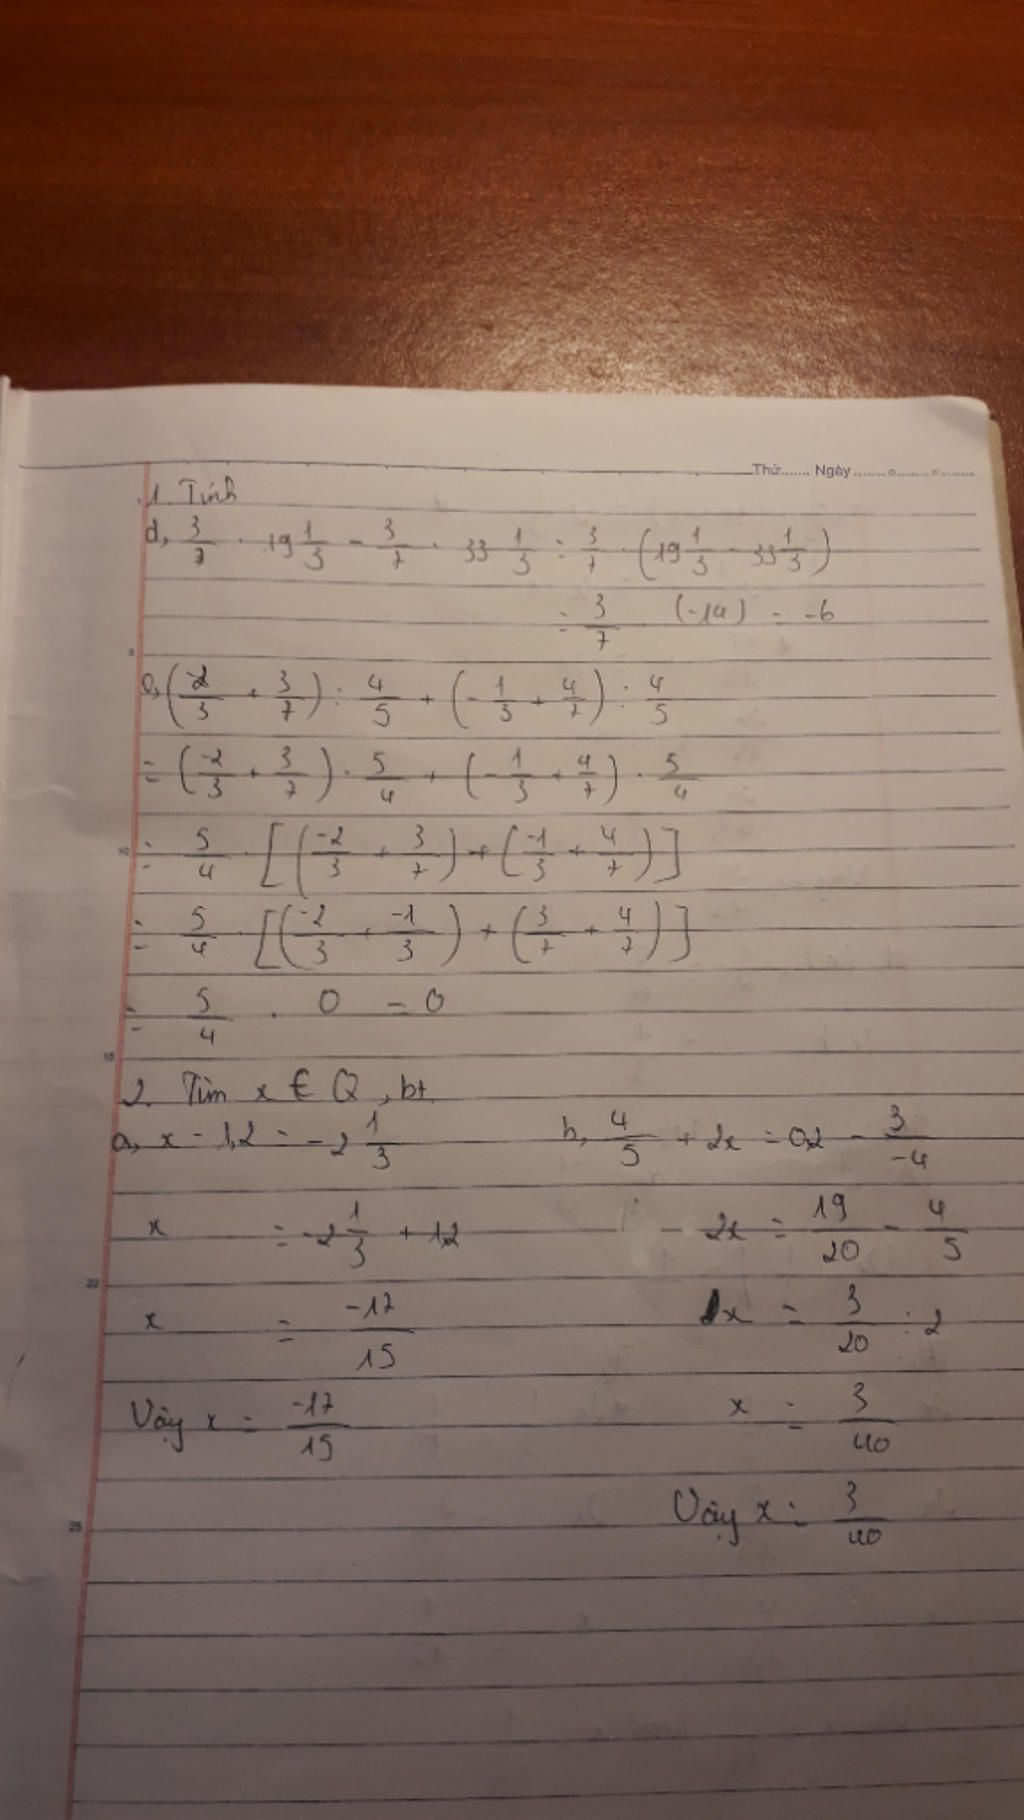 Thứ....... Ngày........o........o........
1. Tính
d, 3/7 . 19 1/3 - 3/7 . 33 1/3 = 3/7 . (19 1/3 - 33 1/3)
= 3/7 . (-14) = -6
5
e, (-2/3 + 3/7) : 4/5 + (-1/3 + 4/7) : 4/5
= (-2/3 + 3/7) . 5/4 + (-1/3 + 4/7) . 5/4
10
= 5/4 . [(-2/3 + 3/7) + (-1/3 + 4/7)]
= 5/4 . [(-2/3 + -1/3) + (3/7 + 4/7)]
= 5/4 . 0 = 0
15
2. Tìm x ∈ Q, bt
a, x - 1,2 = -2 1/3
x = -2 1/3 + 1,2
20
x = -17/15
Vậy x = -17/15
b, 4/5 + 2x = 0,2 - 3/-4
2x = 19/20 - 4/5
x = 3/20 : 2
x = 3/40
Vậy x = 3/40
25